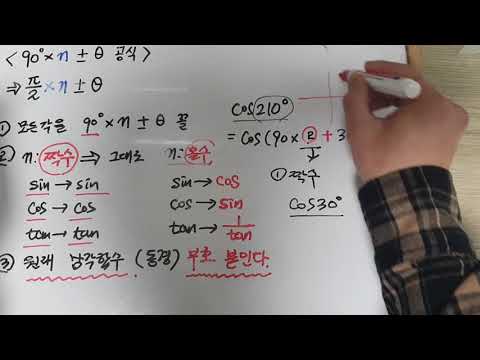 < 90° × n ± θ 공식 >
⇒ π/2 × n ± θ
① 모든각을 90° × n ± θ 꼴
② n: 짝수 ⇒ 그대로 n: 홀수
sin → sin sin → cos
cos → cos cos → sin
tan → tan tan → 1/tan
③ 원래 삼각함수 (동경) 부호 붙인다.
cos 210°
= cos (90 × 2 + 3
① 짝수
cos 30°